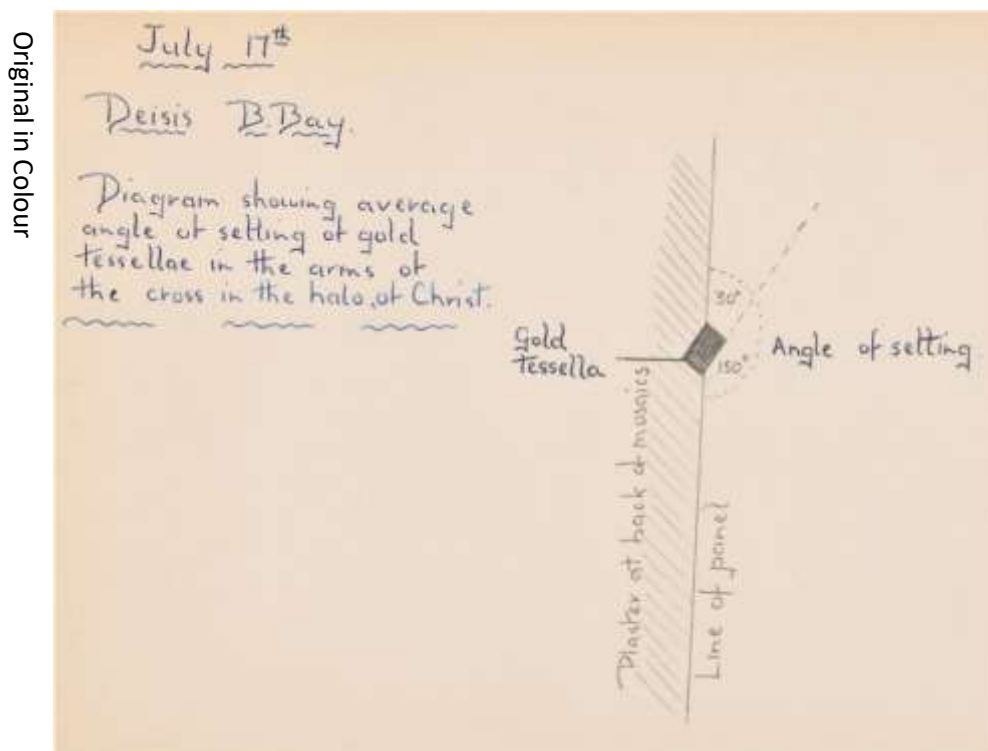 Original in Colour
July 17th
Deisis B.Bay.
Diagram showing average
angle of setting of gold
tessellae in the arms of
the cross in the halo, of Christ.
Gold
tessella
30°
150°
Angle of setting
Plaster at back of mosaics
Line of panel